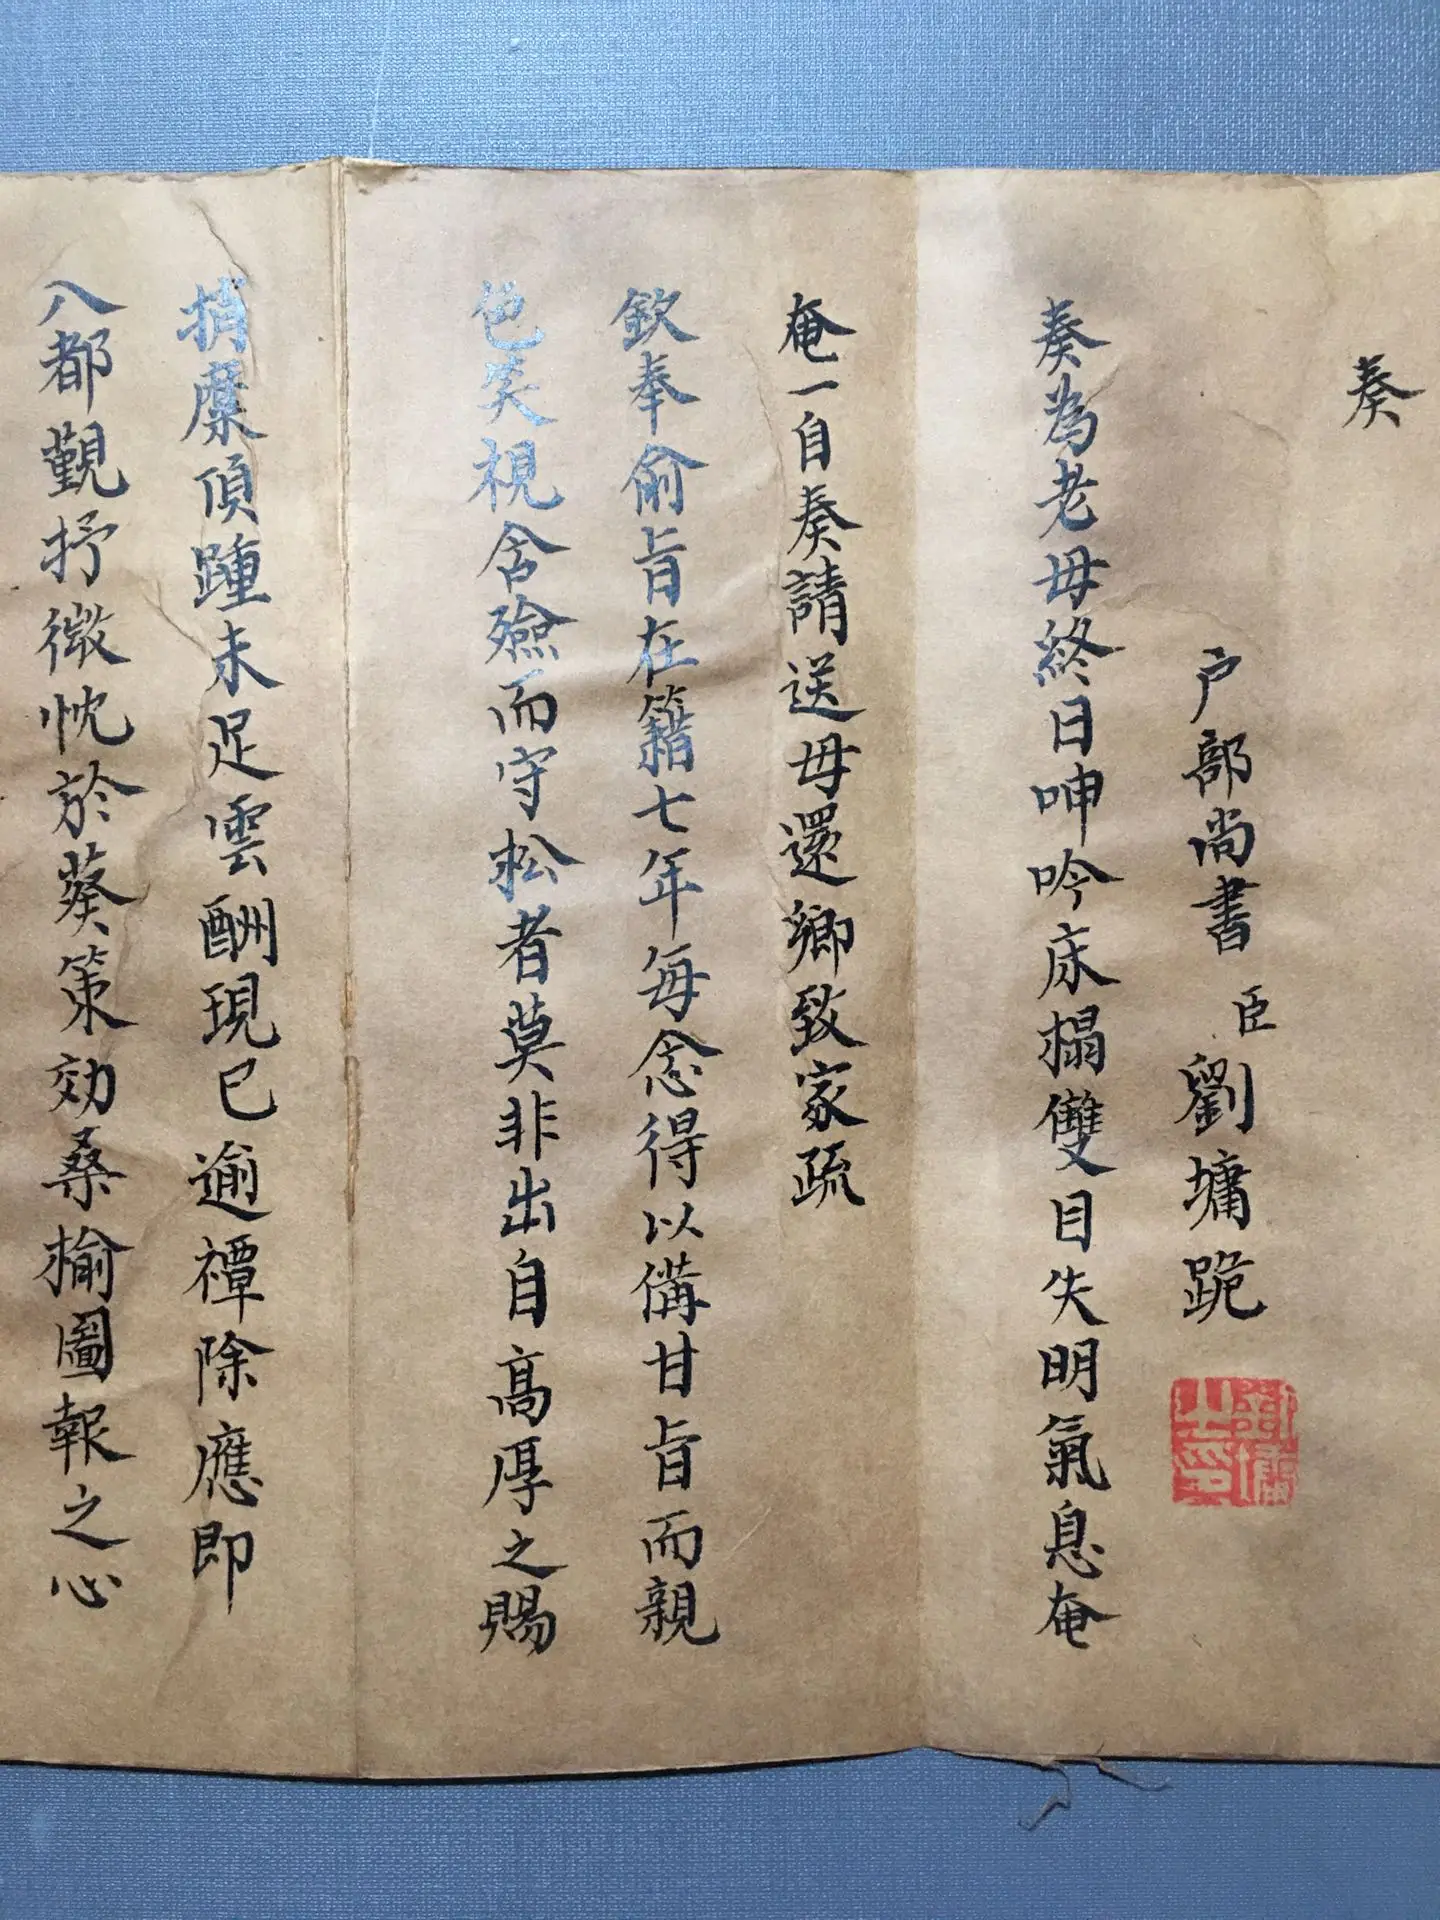 奏
户部尚書 臣 劉墉跪
劉墉之印
奏為老母終日呻吟床榻雙目失明氣息奄
奄一自奏請送母還鄉致家疏
欽奉俞旨在籍七年每念得以備甘旨而親
色笑視含殮而守松者莫非出自高厚之賜
捎糜頂踵未足雲酬現已逾禫除應即
八都觀抒微忱於葵策効桑榆圖報之心